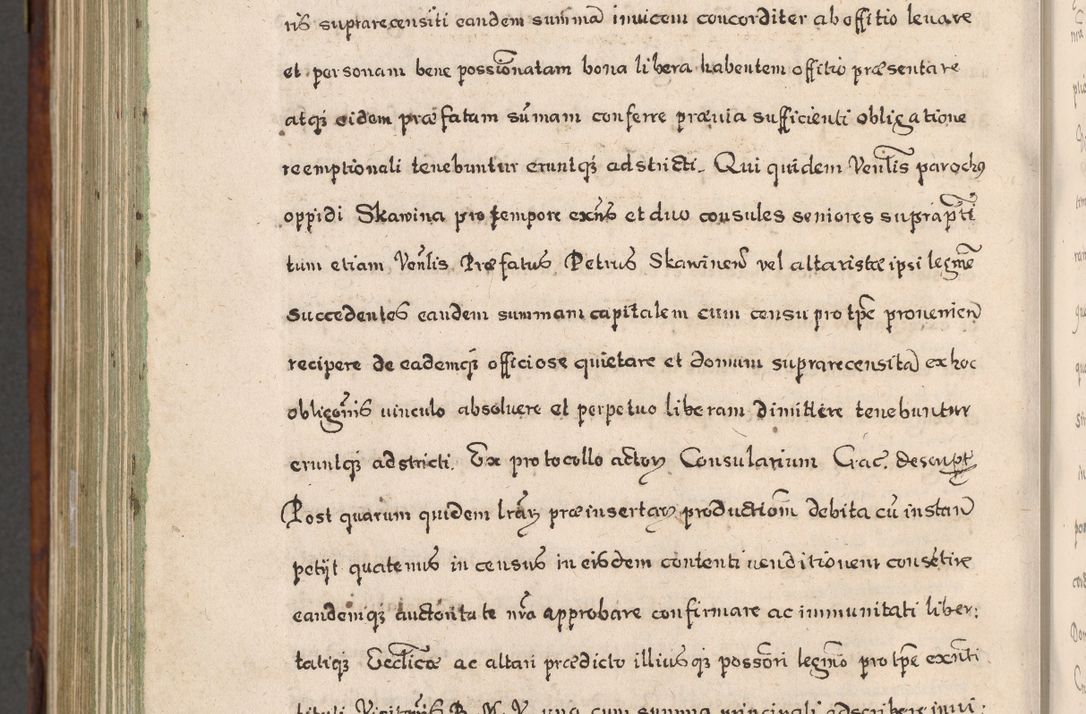 ris suprarecensiti eandem summã inuicem concorditer ab offitio leuare
et personam bene possionatam bona libera habentem offitio præsentare
atq₃ eidem præfatam sum̃am conferre præuia sufficienti obligatione
reemptionali tenebuntur eruntq₃ adstricti. Qui quidem Ven̄lis parochꝰ
oppidi Skawina pro tempore exñs et duo consules seniores suprap̃ti
tum etiam Ven̄lis Præfatus Petrus Skawineñ vel altaristæ ipsi legm̃e
succedentes eandem summam capitalem cum censu pro tp̃e prouenieñ
recipere de eademq₃ officiose quietare et domum suprarecensitã ex hoc
obligōnis uinculo absoluere et perpetuo liberam dimittere tenebuntur
eruntq₃ adstricti. Ex protocollo actoꝝ Consularium Crac. descript
Post quarum quidem lr̃aꝝ præinsertaꝝ productiom̃ debita cũ instañ
petijt quatenus in census in eisdem contenti uenditionem consẽtire
eandemq₃ auctoritate nr̃a approbare confirmare ac immunitati liber:
tatiq₃ Eccl̃icæ ac altari prædicto illiusq₃ possõri legmõ pro tp̃e exñti